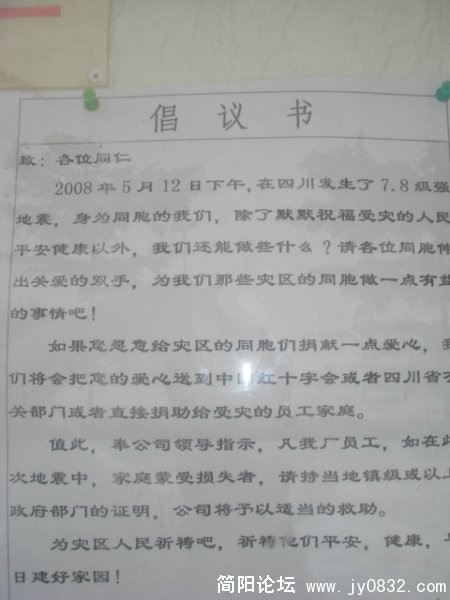 倡议书
致：各位同仁
2008年5月12日下午，在四川发生了7.8级强
地震，身为同胞的我们，除了默默祝福受灾的人民
平安健康以外，我们还能做些什么？请各位同胞伸
出关爱的双手，为我们那些灾区的同胞做一点有益
的事情吧！
如果您愿意给灾区的同胞们捐献一点爱心，我
们将会把您的爱心送到中国红十字会或者四川省有
关部门或者直接捐助给受灾的员工家庭。
值此，奉公司领导指示，凡我厂员工，如在此
次地震中，家庭蒙受损失者，请持当地镇级或以上
政府部门的证明，公司将予以适当的救助。
为灾区人民祈祷吧，祈祷他们平安，健康，
日建好家园！
简阳论坛 www.jy0832.com